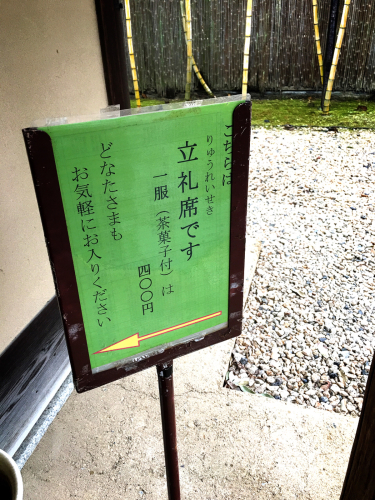 こちらは
りゅうれいせき
立礼席です
一服（茶菓子付）は
四〇〇円
どなたさまも
お気軽にお入りください